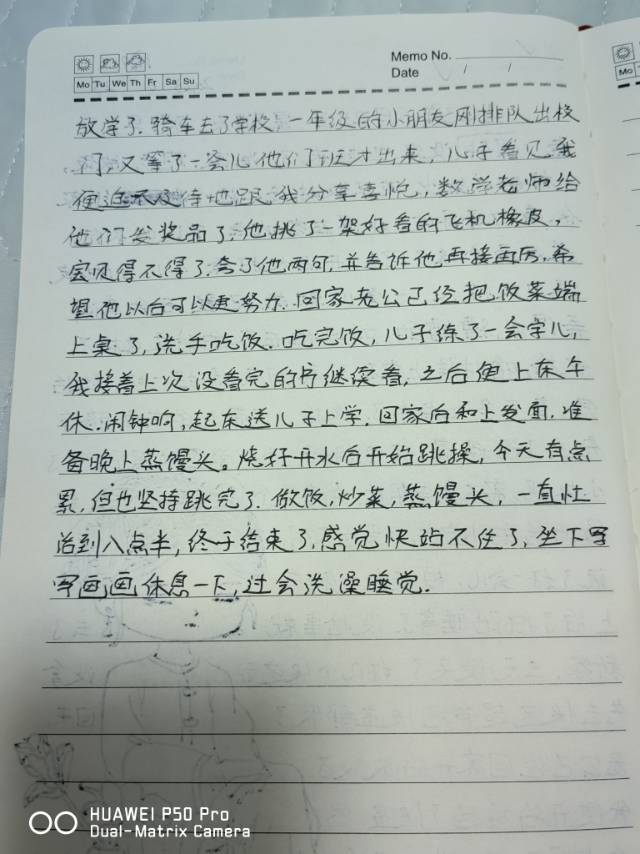 Memo No.
Date / /
Mo Tu We Th Fr Sa Su
Mo
放学了.骑车去了学校,一年级的小朋友刚排队出校
门,又等了一会儿他们班才出来,儿子看见我
便迫不及待地跟我分享喜悦,数学老师给
他们发奖品了,他挑了一架好看的飞机橡皮,
宝贝得不得了.夸了他两句,并告诉他再接再厉,希
望他以后可以更努力.回家老公已经把饭菜端
上桌了,洗手吃饭.吃完饭,儿子练了一会字儿,
我接着上次没看完的书继续看,之后便上床午
休.闹钟响,起床送儿子上学.回家后和上发面,准
备晚上蒸馒头。烧好开水后开始跳操,今天有点
累,但也坚持跳完了.做饭,炒菜,蒸馒头,一直忙
活到八点半,终于结束了,感觉快站不住了,坐下写
写画画休息一下,过会洗澡睡觉.
HUAWEI P50 Pro
Dual-Matrix Camera